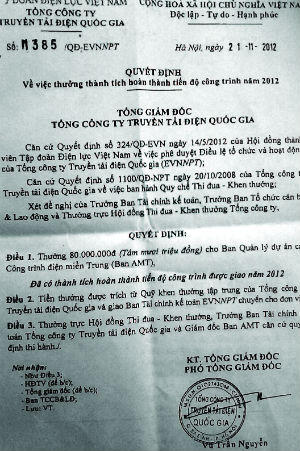 ĐOÀN ĐIỆN LỰC VIỆT NAM
TỔNG CÔNG TY
TRUYỀN TẢI ĐIỆN QUỐC GIA
CỘNG HOÀ XÃ HỘI CHỦ NGHĨA VIỆT NAM
Độc lập - Tự do - Hạnh phúc
Số: 1385 /QĐ-EVNNPT
Hà Nội, ngày 21 -11- 2012
QUYẾT ĐỊNH
Về việc thưởng thành tích hoàn thành tiến độ công trình năm 2012
TỔNG GIÁM ĐỐC
TỔNG CÔNG TY TRUYỀN TẢI ĐIỆN QUỐC GIA
Căn cứ Quyết định số 324/QĐ-EVN ngày 14/5/2012 của Hội đồng thành
viên Tập đoàn Điện lực Việt Nam về việc phê duyệt Điều lệ tổ chức và hoạt động
của Tổng công ty Truyền tải điện Quốc gia (EVNNPT);
Căn cứ Quyết định số 1100/QĐ-NPT ngày 20/10/2008 của Tổng công ty
Truyền tải điện Quốc gia về việc ban hành Quy chế Thi đua - Khen thưởng;
Xét đề nghị của Trưởng Ban Tài chính kế toán, Trưởng Ban Tổ chức cán bộ
& Lao động và Thường trực Hội đồng Thi đua - Khen thưởng Tổng công ty,
QUYẾT ĐỊNH:
Điều 1. Thưởng 80.000.000đ (Tám mươi triệu đồng) cho Ban Quản lý dự án các
Công trình điện miền Trung (Ban AMT),
Đã có thành tích hoàn thành tiến độ công trình được giao năm 2012
Điều 2. Tiền thưởng được trích từ Quỹ khen thưởng tập trung của Tổng công
Truyền tải điện Quốc gia và giao Ban Tài chính kế toán EVNNPT chuyển cho đơn vị
Điều 3. Thường trực Hội đồng Thi đua - Khen thưởng, Trưởng Ban Tài chính
toán Tổng công ty Truyền tải điện Quốc gia và Giám đốc Ban AMT căn cứ quyết
định thi hành./.
Nơi nhận:
- Như Điều 3;
- HĐTV (để b/c);
- Tổng giám đốc (để b/c);
- Ban TCCB&LĐ;
- Lưu: VT.
KT. TỔNG GIÁM ĐỐC
PHÓ TỔNG GIÁM ĐỐC
TỔNG CÔNG TY
TRUYỀN TẢI ĐIỆN
QUỐC GIA
Vũ Trần Nguyễn